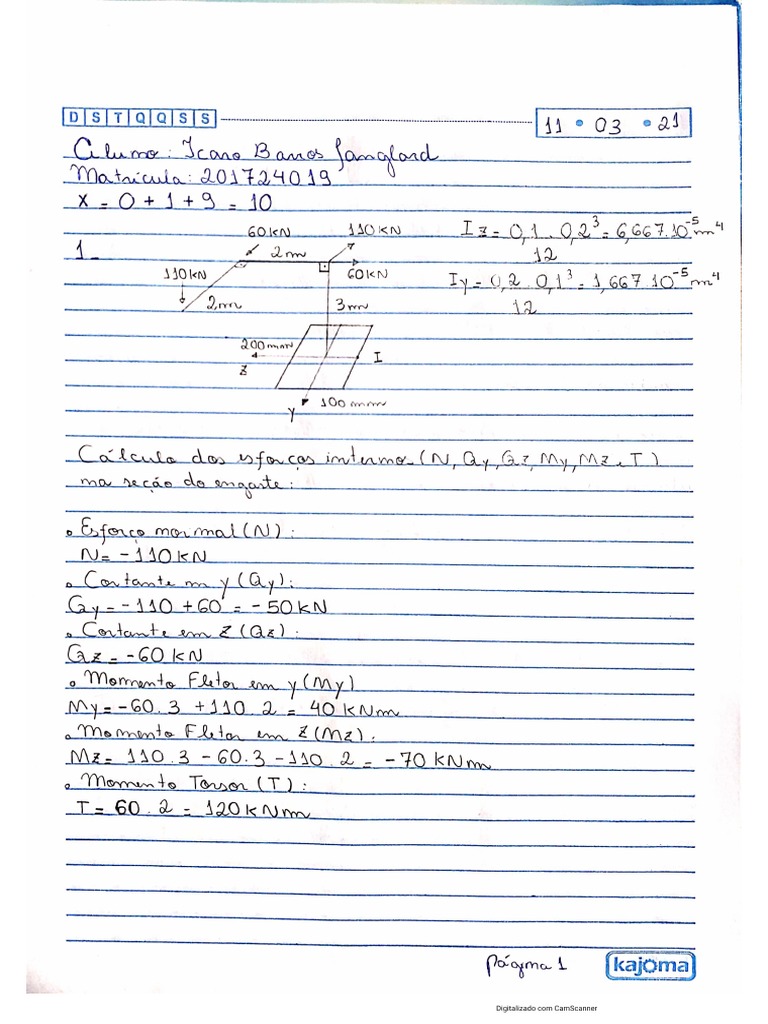 D S T Q Q S S
11 • 03 • 21
Aluno: Icaro Barros Sanglard
Matrícula: 201724019
X = 0 + 1 + 9 = 10
1-
60KN
110KN
2m
110KN
60KN
2m
3m
200mm
Z
I
Y
100mm
Iz = 0,1 . 0,2³ = 6,667.10⁻⁵m⁴
12
Iy = 0,2 . 0,1³ = 1,667.10⁻⁵m⁴
12
Cálculo dos esforços interno (N, Qy, Qz, My, Mz, T)
na seção do engaste:
• Esforço normal (N):
N = -110KN
• Cortante em y (Qy):
Qy = -110 + 60 = -50KN
• Cortante em Z (Qz):
Qz = -60 KN
• Momento Fletor em y (My)
My = -60.3 + 110.2 = 40 KNm
• Momento Fletor em Z (Mz):
Mz = 110.3 - 60.3 - 110.2 = -70 KNm
• Momento Torsor (T):
T = 60.2 = 120KNm
Página 1
kajoma
Digitalizado com CamScanner